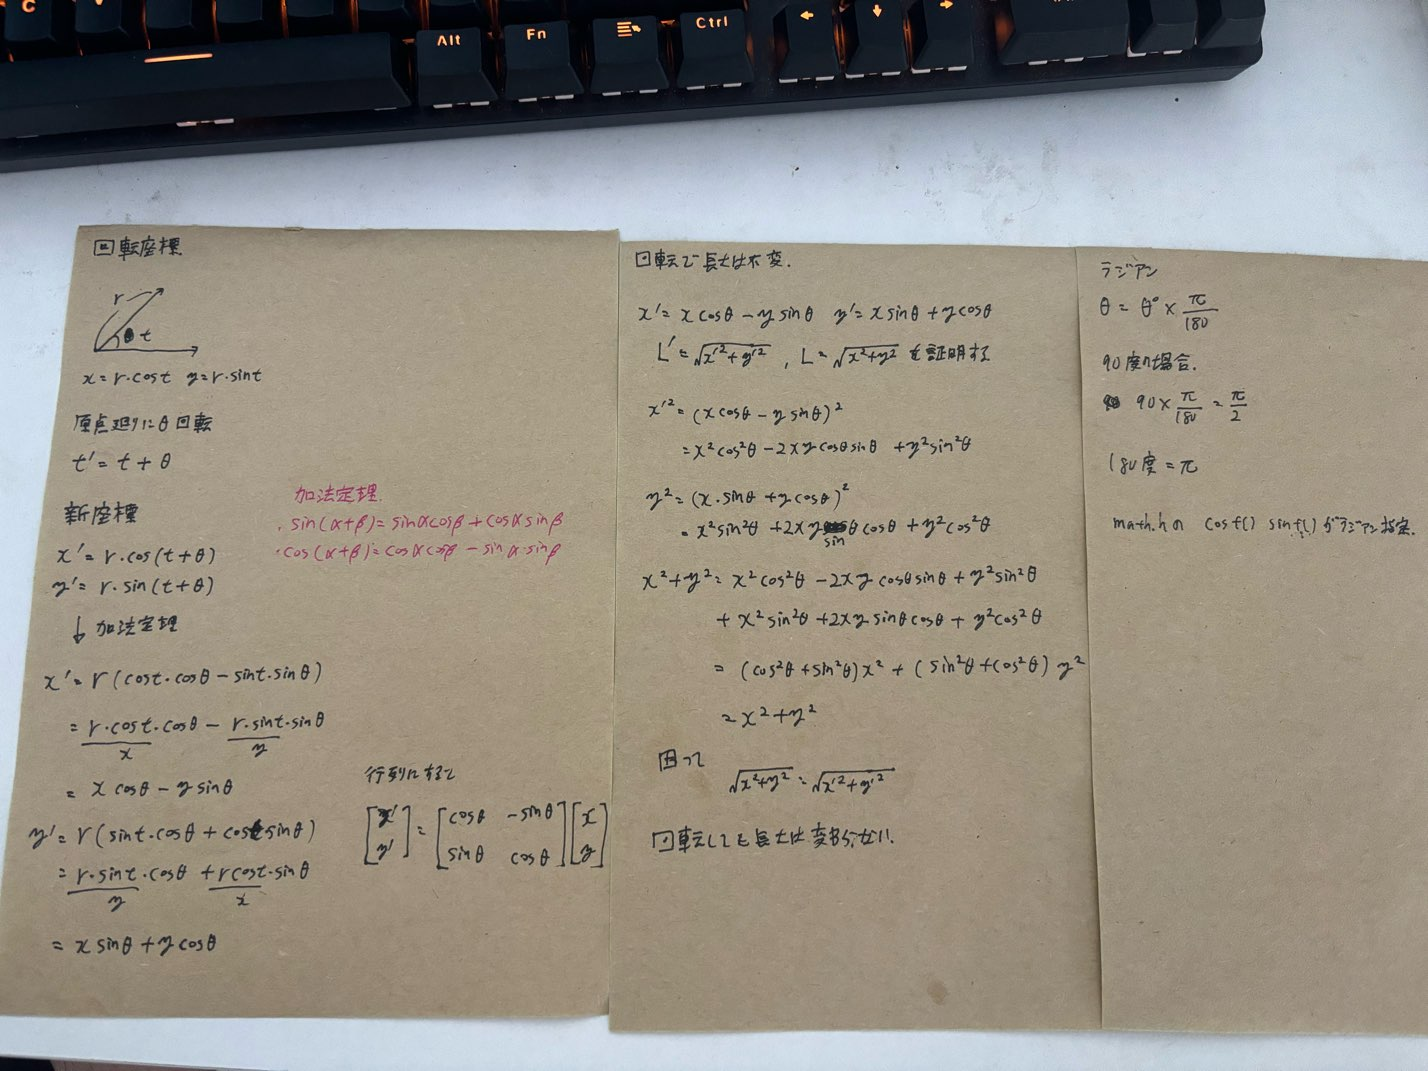 C
V
Alt
Fn
Ctrl
←
↓
→
回転座標
r
t
x=r・cost y=r・sint
原点廻りにθ回転
t'=t+θ
新座標
x'=r・cos(t+θ)
y'=r・sin(t+θ)
↓加法定理
加法定理
・sin(α+β)=sinαcosβ+cosαsinβ
・cos(α+β)=cosαcosβ-sinα・sinβ
x'=r(cost・cosθ-sint・sinθ)
=r・cost・cosθ-r・sint・sinθ
x y
=x cosθ-y sinθ
y'=r(sint・cosθ+cost sinθ)
=r・sint・cosθ+rcost・sinθ
y x
=x sinθ+y cosθ
行列にすると
[x' y']=[cosθ -sinθ sinθ cosθ][x y]
回転で長さは不変.
x'=x cosθ-y sinθ y'=x sinθ+y cosθ
L'=√x'²+y'² , L=√x²+y² を証明する
x'²=(x cosθ-y sinθ)²
=x²cos²θ-2xy cosθ sinθ +y²sin²θ
y²=(x・sinθ+y cosθ)²
=x²sin²θ+2xy sinθ cosθ+y²cos²θ
x²+y²=x²cos²θ-2xy cosθ sinθ+y²sin²θ
+x²sin²θ+2xy sinθ cosθ+y²cos²θ
=(cos²θ+sin²θ)x²+(sin²θ+cos²θ)y²
=x²+y²
因って
√x²+y²=√x'²+y'²
回転しても長さは変わらない.
ラジアン
θ=θ°×π/180
90度の場合.
90×π/180=π/2
180度=π
math.hの cosf() sinf()がラジアン指定.